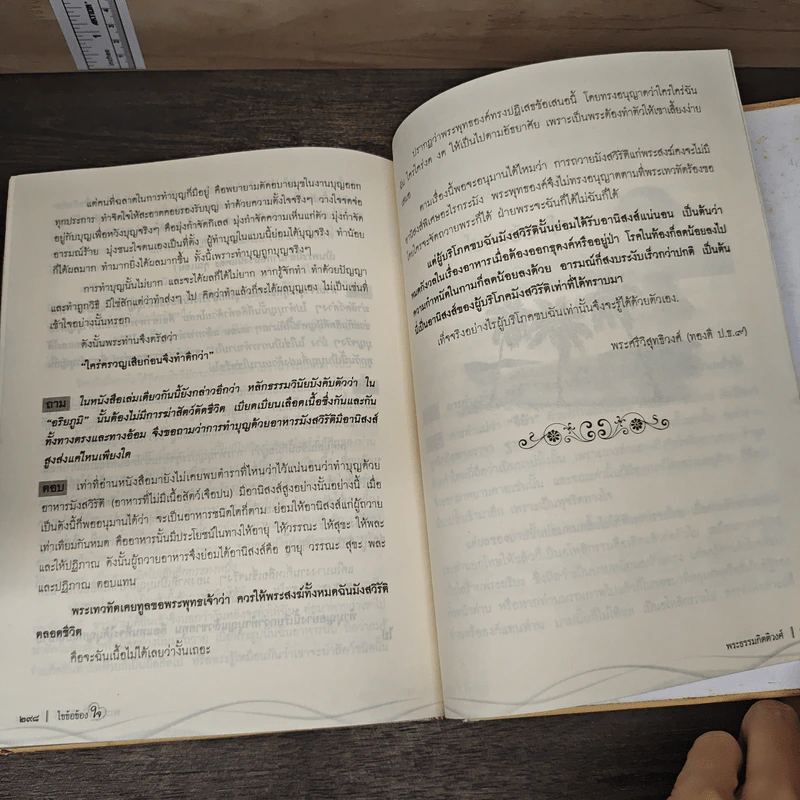 แต่คนที่ฉลาดในการทำบุญก็มีอยู่ คือพยายามตัดอบายมุขในงานบุญออก
ทุกประการ ทำจิตใจให้สะอาดคอยรองรับบุญ ทำด้วยความตั้งใจจริงๆ วางใจจดจ่อ
อยู่กับบุญเพื่อหวังบุญจริงๆ คือมุ่งกำจัดกิเลส มุ่งกำจัดความเห็นแก่ตัว มุ่งกำจัด
อารมณ์ร้าย มุ่งชนะใจตนเองเป็นที่ตั้ง ผู้ทำบุญในแบบนี้ย่อมได้บุญจริงๆ ทำน้อย
ก็ได้ผลมาก ทำมากยิ่งได้ผลมากขึ้น ทั้งนี้เพราะทำบุญถูกบุญจริงๆ
การทำบุญนั้นไม่ยาก และจะได้ผลก็ไม่ได้ยาก หากรู้จักทำ ทำด้วยปัญญา
และทำถูกวิธี มิใช่สักแต่ว่าทำส่งๆ ไป คิดว่าทำแล้วก็จะได้ผลบุญเอง ไม่เป็นเช่นที่
เข้าใจอย่างนั้นหรอก
ดังนั้นพระท่านจึงตรัสว่า
“ใคร่ครวญเสียก่อนจึงทำดีกว่า”
ถาม ในหนังสือเล่มเดียวกันนี้ยังกล่าวอีกว่า หลักธรรมวินัยบังคับตัวว่า ใน
“อริยภูมิ” นั้นต้องไม่มีการฆ่าสัตว์ตัดชีวิต เบียดเบียนเลือดเนื้อซึ่งกันและกัน
ทั้งทางตรงและทางอ้อม จึงขอถามว่าการทำบุญด้วยอาหารมังสวิรัติมีอานิสงส์
สูงส่งแค่ไหนเพียงใด
ตอบ เท่าที่อ่านหนังสือมายังไม่เคยพบตำราที่ไหนว่าไว้แน่นอนว่าทำบุญด้วย
อาหารมังสวิรัติ (อาหารที่ไม่มีเนื้อสัตว์เจือปน) มีอานิสงส์สูงอย่างนั้นอย่างนี้ เมื่อ
เป็นดังนี้ก็พออนุมานได้ว่า จะเป็นอาหารชนิดใดก็ตาม ย่อมให้อานิสงส์แก่ผู้ถวาย
เท่าเทียมกันหมด คืออาหารนั้นมีประโยชน์ในทางให้อายุ ให้วรรณะ ให้สุขะ ให้พละ
และให้ปฏิภาณ ดังนั้นผู้ถวายอาหารจึงย่อมได้อานิสงส์คือ อายุ วรรณะ สุขะ พละ
และปฏิภาณ ตอบแทน
พระเทวทัตเคยทูลขอพระพุทธเจ้าว่า ควรให้พระสงฆ์ทั้งหมดฉันมังสวิรัติ
ตลอดชีวิต
คือจะฉันเนื้อไม่ได้เลยว่างั้นเถอะ
๒๙๘ | ไขข้อข้องใจ
ปรากฏว่าพระพุทธองค์ทรงปฏิเสธข้อเสนอนี้ โดยทรงอนุญาตว่าใครใคร่ฉัน
ฉัน ใครใคร่งด งด ให้เป็นไปตามอัธยาศัย เพราะเป็นพระต้องทำตัวให้เขาเลี้ยงง่าย
เสมอ
ตามเรื่องนี้พอจะอนุมานได้ไหมว่า การถวายมังสวิรัติแก่พระสงฆ์คงจะไม่มี
อานิสงส์พิเศษอะไรกระมัง พระพุทธองค์จึงไม่ทรงอนุญาตตามที่พระเทวทัตร้องขอ
โดยใครจะจัดถวายพระก็ได้ ฝ่ายพระจะฉันก็ได้ไม่ฉันก็ได้
แต่ผู้บริโภคขบฉันมังสวิรัตินั้นย่อมได้รับอานิสงส์แน่นอน เป็นต้นว่า
หมดกังวลในเรื่องอาหารเมื่อต้องออกธุดงค์หรืออยู่ป่า โรคในท้องก็ลดน้อยลงไป
ความกำหนัดในกามก็ลดน้อยลงด้วย อารมณ์ก็สงบระงับเร็วกว่าปกติ เป็นต้น
นี่เป็นอานิสงส์ของผู้บริโภคมังสวิรัติเท่าที่ได้ทราบมา
เท็จจริงอย่างไรผู้บริโภคขบฉันเท่านั้นจึงจะรู้ได้ด้วยตัวเอง.
พระศรีวิสุทธิวงศ์ (ทองดี ป.ธ.๙)
พระธรรมกิตติวงศ์ |